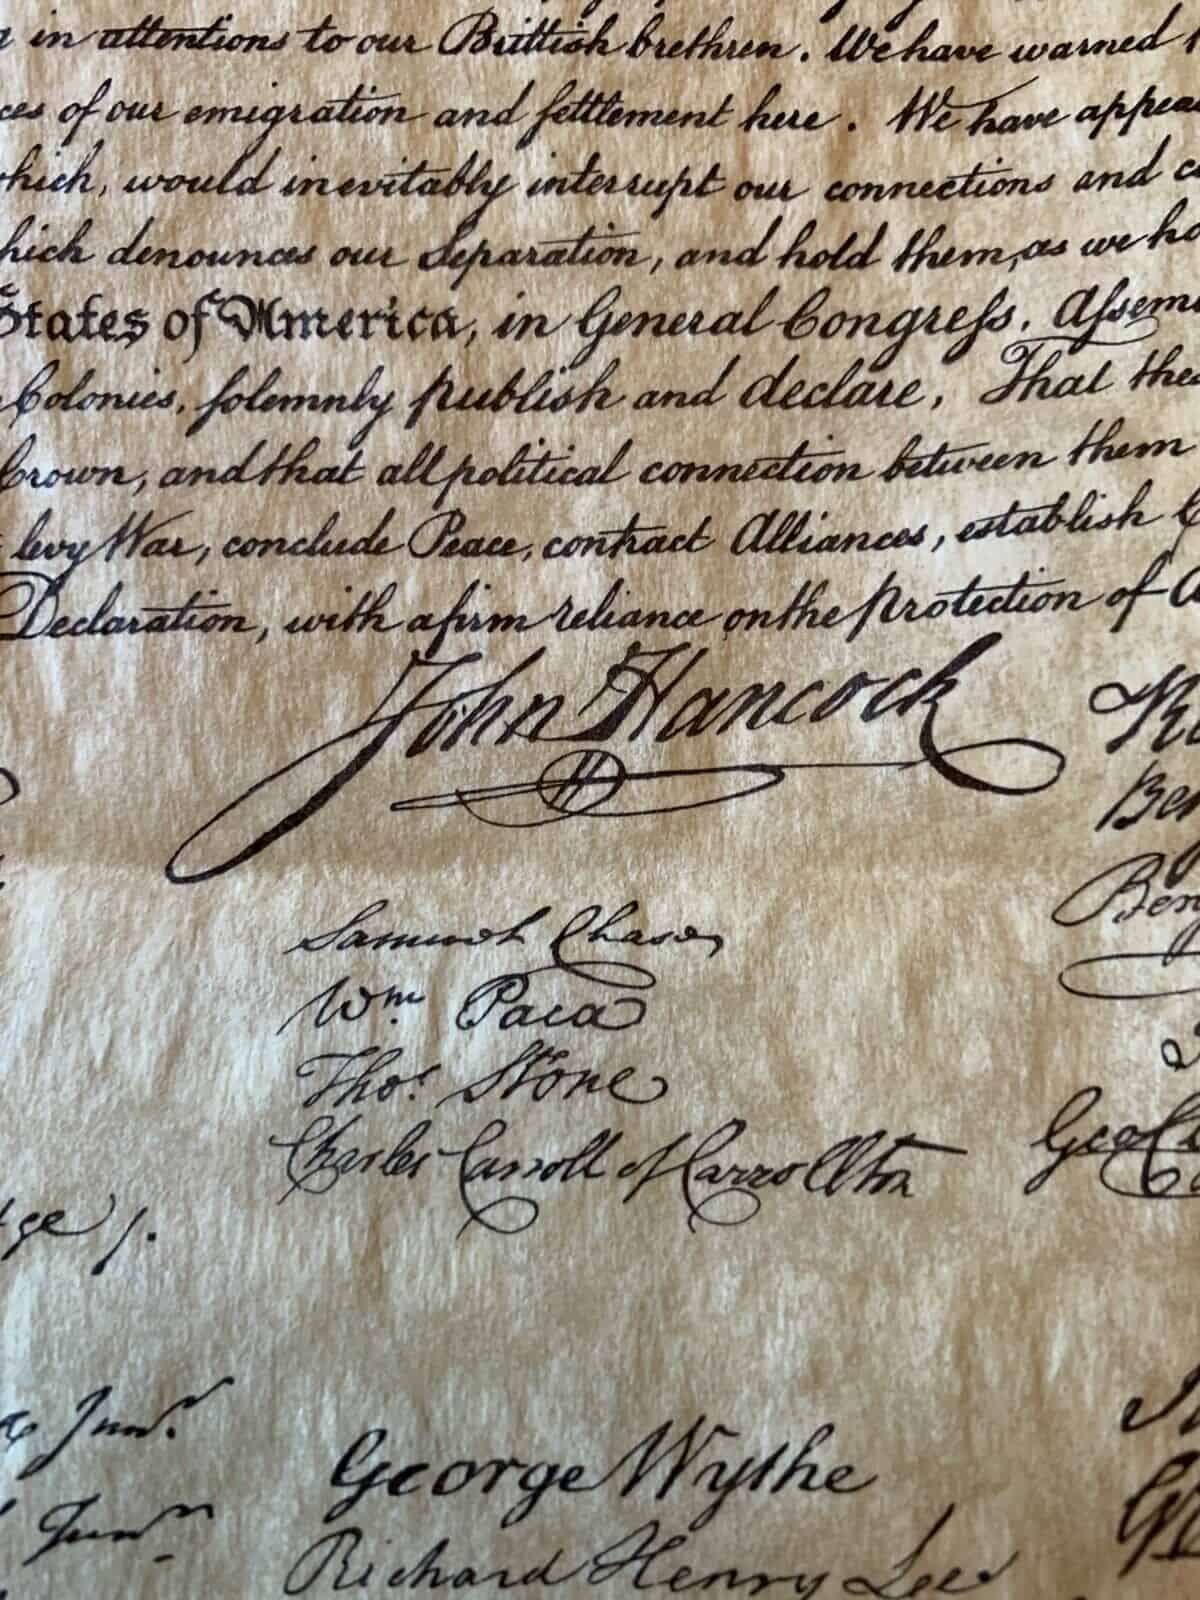 in attentions to our Brittish brethren. We have warned
ces of our emigration and settlement here. We have appea
hich, would inevitably interrupt our connections and co
hich denounces our Separation, and hold them, as we ho
States of America, in General Congress, Assem
Colonies, solemnly publish and declare, That thes
Crown, and that all political connection between them
levy War, conclude Peace, contract Alliances, establish C
Declaration, with a firm reliance on the protection of
John Hancock
Samuel Chase
Wm. Paca
Thos. Stone
Charles Carroll of Carrollton
ge Jr.
Junr.
Junr.
George Wythe
Richard Henry Lee
Ro
Ben
Benj
Geo